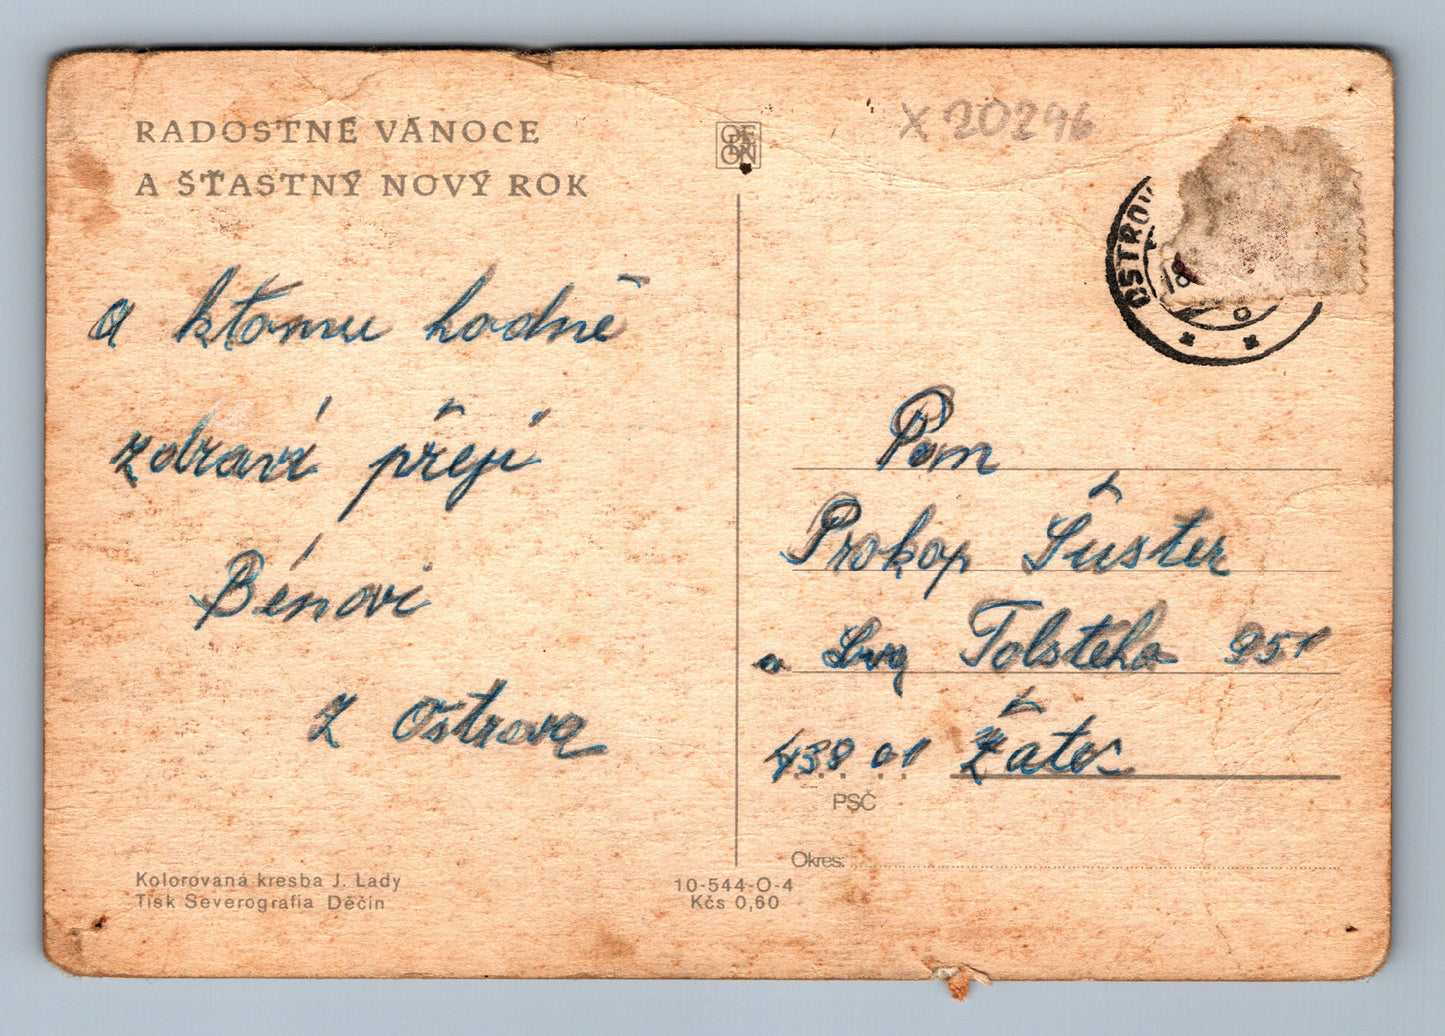 RADOSTNÉ VÁNOCE
A ŠŤASTNÝ NOVÝ ROK
a ktomu hodně
zdraví přejí
Bénovi
z Ostrova
Kolorovaná kresba J. Lady
Tisk Severografia Děčín
10-544-O-4
Kčs 0,60
ODEON
X 20296
OSTROV
18
Pan
Prokop Šuster
Tolsteho 951
438 01 Žatec
PSČ
Okres: